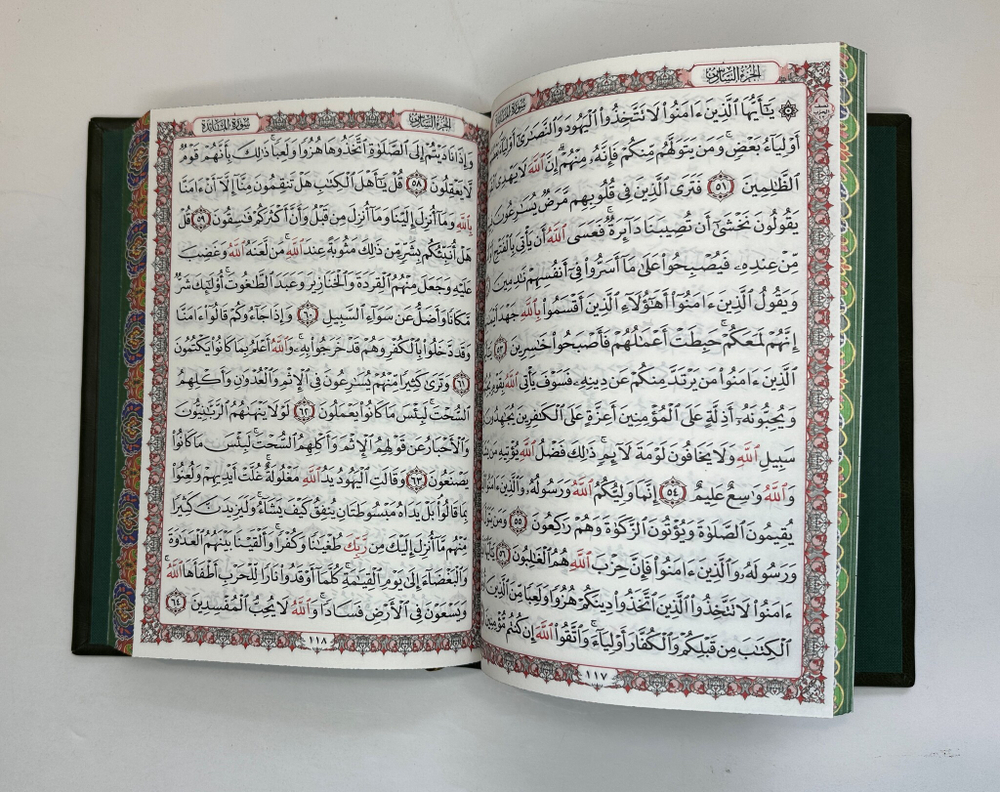 الجزء السادس
سورة المائدة
۞ يَٰٓأَيُّهَا ٱلَّذِينَ ءَامَنُوا۟ لَا تَتَّخِذُوا۟ ٱلْيَهُودَ وَٱلنَّصَٰرَىٰٓ أَوْلِيَآءَ
أَوْلِيَآءُ بَعْضٍ ۚ وَمَن يَتَوَلَّهُم مِّنكُمْ فَإِنَّهُۥ مِنْهُمْ ۗ إِنَّ ٱللَّهَ لَا يَهْدِى
ٱلظَّٰلِمِينَ ٥١ فَتَرَى ٱلَّذِينَ فِى قُلُوبِهِم مَّرَضٌ يُسَٰرِعُونَ
يَقُولُونَ نَخْشَىٰٓ أَن تُصِيبَنَا دَآئِرَةٌ ۚ فَعَسَى ٱللَّهُ أَن يَأْتِىَ بِٱلْفَتْحِ
مِّنْ عِندِهِۦ فَيُصْبِحُوا۟ عَلَىٰ مَآ أَسَرُّوا۟ فِىٓ أَنفُسِهِمْ نَٰدِمِينَ
وَيَقُولُ ٱلَّذِينَ ءَامَنُوٓا۟ أَهَٰٓؤُلَآءِ ٱلَّذِينَ أَقْسَمُوا۟ بِٱللَّهِ جَهْدَ
إِنَّهُمْ لَمَعَكُمْ ۚ حَبِطَتْ أَعْمَٰلُهُمْ فَأَصْبَحُوا۟ خَٰسِرِينَ ٥٣
ٱلَّذِينَ ءَامَنُوا۟ مَن يَرْتَدَّ مِنكُمْ عَن دِينِهِۦ فَسَوْفَ يَأْتِى ٱللَّهُ بِقَوْمٍ
وَيُحِبُّونَهُۥٓ أَذِلَّةٍ عَلَى ٱلْمُؤْمِنِينَ أَعِزَّةٍ عَلَى ٱلْكَٰفِرِينَ يُجَٰهِدُونَ
سَبِيلِ ٱللَّهِ وَلَا يَخَافُونَ لَوْمَةَ لَآئِمٍ ۚ ذَٰلِكَ فَضْلُ ٱللَّهِ يُؤْتِيهِ مَن
وَٱللَّهُ وَٰسِعٌ عَلِيمٌ ٥٤ إِنَّمَا وَلِيُّكُمُ ٱللَّهُ وَرَسُولُهُۥ وَٱلَّذِينَ
يُقِيمُونَ ٱلصَّلَوٰةَ وَيُؤْتُونَ ٱلزَّكَوٰةَ وَهُمْ رَٰكِعُونَ ٥٥ وَمَن
وَرَسُولَهُۥ وَٱلَّذِينَ ءَامَنُوا۟ فَإِنَّ حِزْبَ ٱللَّهِ هُمُ ٱلْغَٰلِبُونَ ٥٦
ءَامَنُوا۟ لَا تَتَّخِذُوا۟ ٱلَّذِينَ ٱتَّخَذُوا۟ دِينَكُمْ هُزُوًا وَلَعِبًا مِّنَ ٱلَّذِينَ
ٱلْكِتَٰبَ مِن قَبْلِكُمْ وَٱلْكُفَّارَ أَوْلِيَآءَ ۚ وَٱتَّقُوا۟ ٱللَّهَ إِن كُنتُم مُّؤْمِنِينَ
١١٧
الجزء السادس
سورة المائدة
وَإِذَا نَادَيْتُمْ إِلَى ٱلصَّلَوٰةِ ٱتَّخَذُوهَا هُزُوًا وَلَعِبًا ۚ ذَٰلِكَ بِأَنَّهُمْ قَوْمٌ
لَّا يَعْقِلُونَ ٥٨ قُلْ يَٰٓأَهْلَ ٱلْكِتَٰبِ هَلْ تَنقِمُونَ مِنَّآ إِلَّآ أَنْ ءَامَنَّا
بِٱللَّهِ وَمَآ أُنزِلَ إِلَيْنَا وَمَآ أُنزِلَ مِن قَبْلُ وَأَنَّ أَكْثَرَكُمْ فَٰسِقُونَ ٥٩ قُلْ
هَلْ أُنَبِّئُكُم بِشَرٍّ مِّن ذَٰلِكَ مَثُوبَةً عِندَ ٱللَّهِ ۚ مَن لَّعَنَهُ ٱللَّهُ وَغَضِبَ
عَلَيْهِ وَجَعَلَ مِنْهُمُ ٱلْقِرَدَةَ وَٱلْخَنَازِيرَ وَعَبَدَ ٱلطَّٰغُوتَ ۚ أُو۟لَٰٓئِكَ شَرٌّ
مَّكَانًا وَأَضَلُّ عَن سَوَآءِ ٱلسَّبِيلِ ٦٠ وَإِذَا جَآءُوكُمْ قَالُوٓا۟ ءَامَنَّا
وَقَد دَّخَلُوا۟ بِٱلْكُفْرِ وَهُمْ قَدْ خَرَجُوا۟ بِهِۦ ۚ وَٱللَّهُ أَعْلَمُ بِمَا كَانُوا۟ يَكْتُمُونَ
٦١ وَتَرَىٰ كَثِيرًا مِّنْهُمْ يُسَٰرِعُونَ فِى ٱلْإِثْمِ وَٱلْعُدْوَٰنِ وَأَكْلِهِمُ
ٱلسُّحْتَ ۚ لَبِئْسَ مَا كَانُوا۟ يَعْمَلُونَ ٦٢ لَوْلَا يَنْهَىٰهُمُ ٱلرَّبَّٰنِيُّونَ
وَٱلْأَحْبَارُ عَن قَوْلِهِمُ ٱلْإِثْمَ وَأَكْلِهِمُ ٱلسُّحْتَ ۚ لَبِئْسَ مَا كَانُوا۟
يَصْنَعُونَ ٦٣ وَقَالَتِ ٱلْيَهُودُ يَدُ ٱللَّهِ مَغْلُولَةٌ ۚ غُلَّتْ أَيْدِيهِمْ وَلُعِنُوا۟
بِمَا قَالُوا۟ ۘ بَلْ يَدَاهُ مَبْسُوطَتَانِ يُنفِقُ كَيْفَ يَشَآءُ ۚ وَلَيَزِيدَنَّ كَثِيرًا
مِّنْهُم مَّآ أُنزِلَ إِلَيْكَ مِن رَّبِّكَ طُغْيَٰنًا وَكُفْرًا ۚ وَأَلْقَيْنَا بَيْنَهُمُ ٱلْعَدَٰوَةَ
وَٱلْبَغْضَآءَ إِلَىٰ يَوْمِ ٱلْقِيَٰمَةِ ۚ كُلَّمَآ أَوْقَدُوا۟ نَارًا لِّلْحَرْبِ أَطْفَأَهَا ٱللَّهُ ۚ
وَيَسْعَوْنَ فِى ٱلْأَرْضِ فَسَادًا ۚ وَٱللَّهُ لَا يُحِبُّ ٱلْمُفْسِدِينَ ٦٤
١١٨